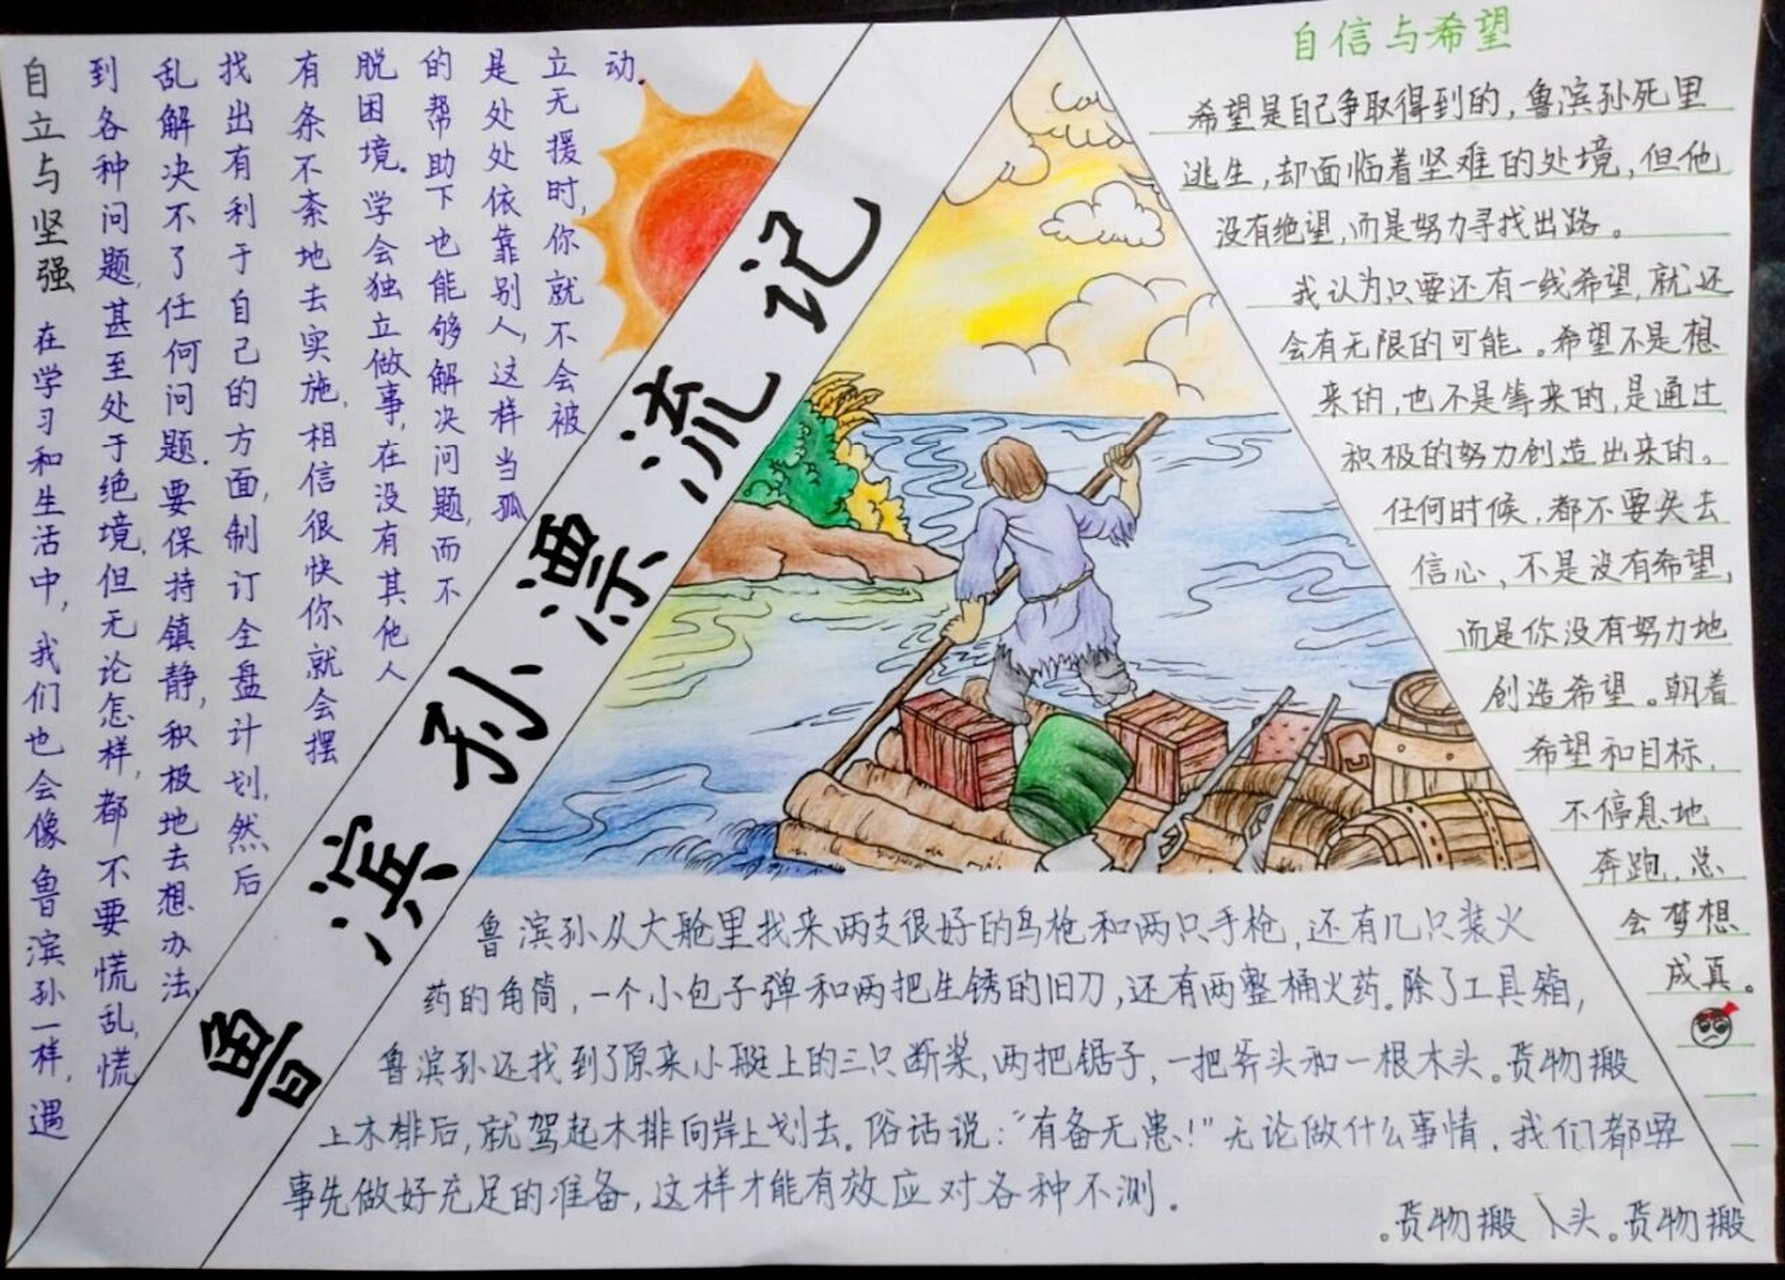 自立与坚强 在学习和生活中，我们也会像鲁滨孙一样，遇
到各种问题，甚至处于绝境，但无论怎样，都不要慌乱，慌
乱解决不了任何问题．要保持镇静，积极地去想办法，
找出有利于自己的方面，制订全盘计划，然后
有条不紊地去实施，相信很快你就会摆
脱困境．学会独立做事，在没有其他人
的帮助下也能够解决问题，而不
是处处依靠别人，这样当孤
立无援时，你就不会被
动．
鲁滨孙漂流记
自信与希望
希望是自己争取得到的，鲁滨孙死里
逃生，却面临着坚难的处境，但他
没有绝望，而是努力寻找出路。
我认为只要还有一线希望，就还
会有无限的可能。希望不是想
来的，也不是等来的，是通过
积极的努力创造出来的。
任何时候，都不要失去
信心，不是没有希望，
而是你没有努力地
创造希望。朝着
希望和目标，
不停息地
奔跑，总
会梦想
成真。
鲁滨孙从大舱里找来两支很好的鸟枪和两只手枪，还有几只装火
药的角筒，一个小包子弹和两把生锈的旧刀，还有两整桶火药．除了工具箱，
鲁滨孙还找到了原来小艇上的三只断桨，两把锯子，一把斧头和一根木头。货物搬
上木排后，就驾起木排向岸上划去．俗话说：“有备无患！”无论做什么事情，我们都要
事先做好充足的准备，这样才能有效应对各种不测．
。货物搬 头。货物搬